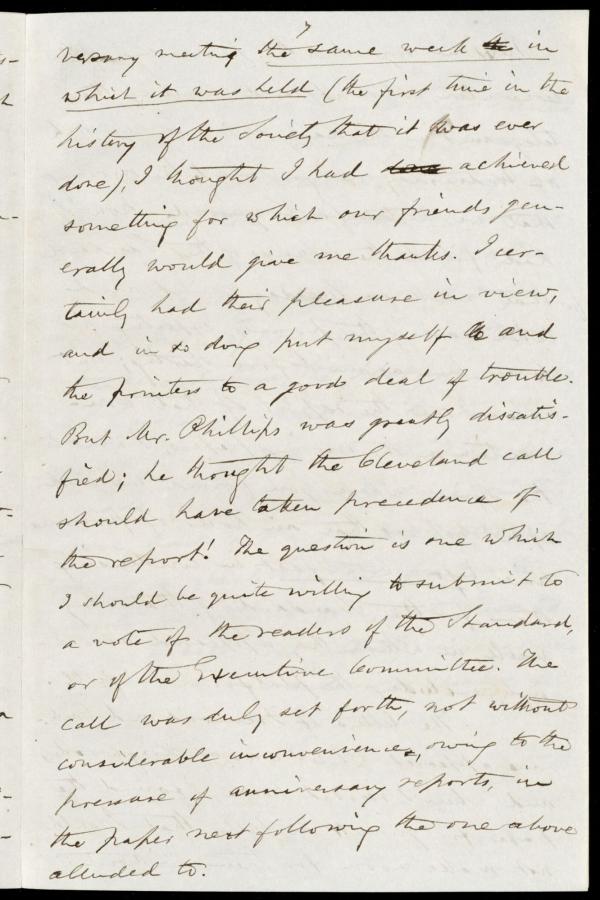 7
versary meeting the same week in
which it was held (the first time in the
history of the Society that it was ever
done), I thought I had achieved
something for which our friends gen-
erally would give me thanks. I cer-
tainly had their pleasure in view,
and in so doing put myself and
the printers to a good deal of trouble.
But Mr. Phillips was greatly dissatis-
fied; he thought the Cleveland call
should have taken precedence of
the report! The question is one which
I should be quite willing to submit to
a vote of the readers of the Standard,
or of the Executive Committee. The
call was duly set forth, not without
considerable inconvenience, owing to the
pressure of anniversary reports, in
the paper next following the one above
alluded to.